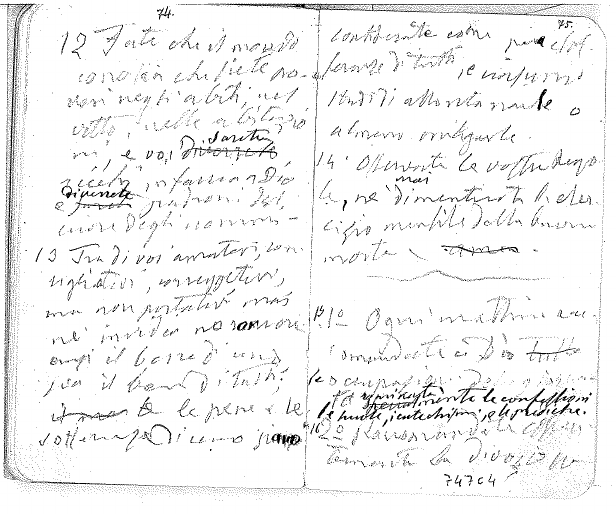 74.
12 Fate che il mondo
conosca che siete po-
veri negli abiti, nel
vitto, nelle abitazio
ni, e voi sarete divenrete
ricchi in faccia a Dio
e diverrete sarete padroni del
cuore degli uomini –
13 Tra di voi amatevi, con
sigliatevi, correggetevi,
ma non portatevi mai
nè invidia nè rancore
anzi il bene di uno
sia il bene di tutti;
le pene e le
sofferenze di uno siano
75.
considerate come pene e sof
ferenze di tutti, e ciascuno
studi di allontanarle o
almeno mitigarle.
14 Osservate le vostre Rego
le, nè mai dimenticate l'eser
cizio mensile della buona
morte. amen.
15 1° Ogni mattina rac
comandate a Dio tutte
le occupazioni della giorna
ta nominata mente le confessioni
le scuole, i catechismi, e le prediche.
16 2° Raccomandate costan
temente la divozione
74704